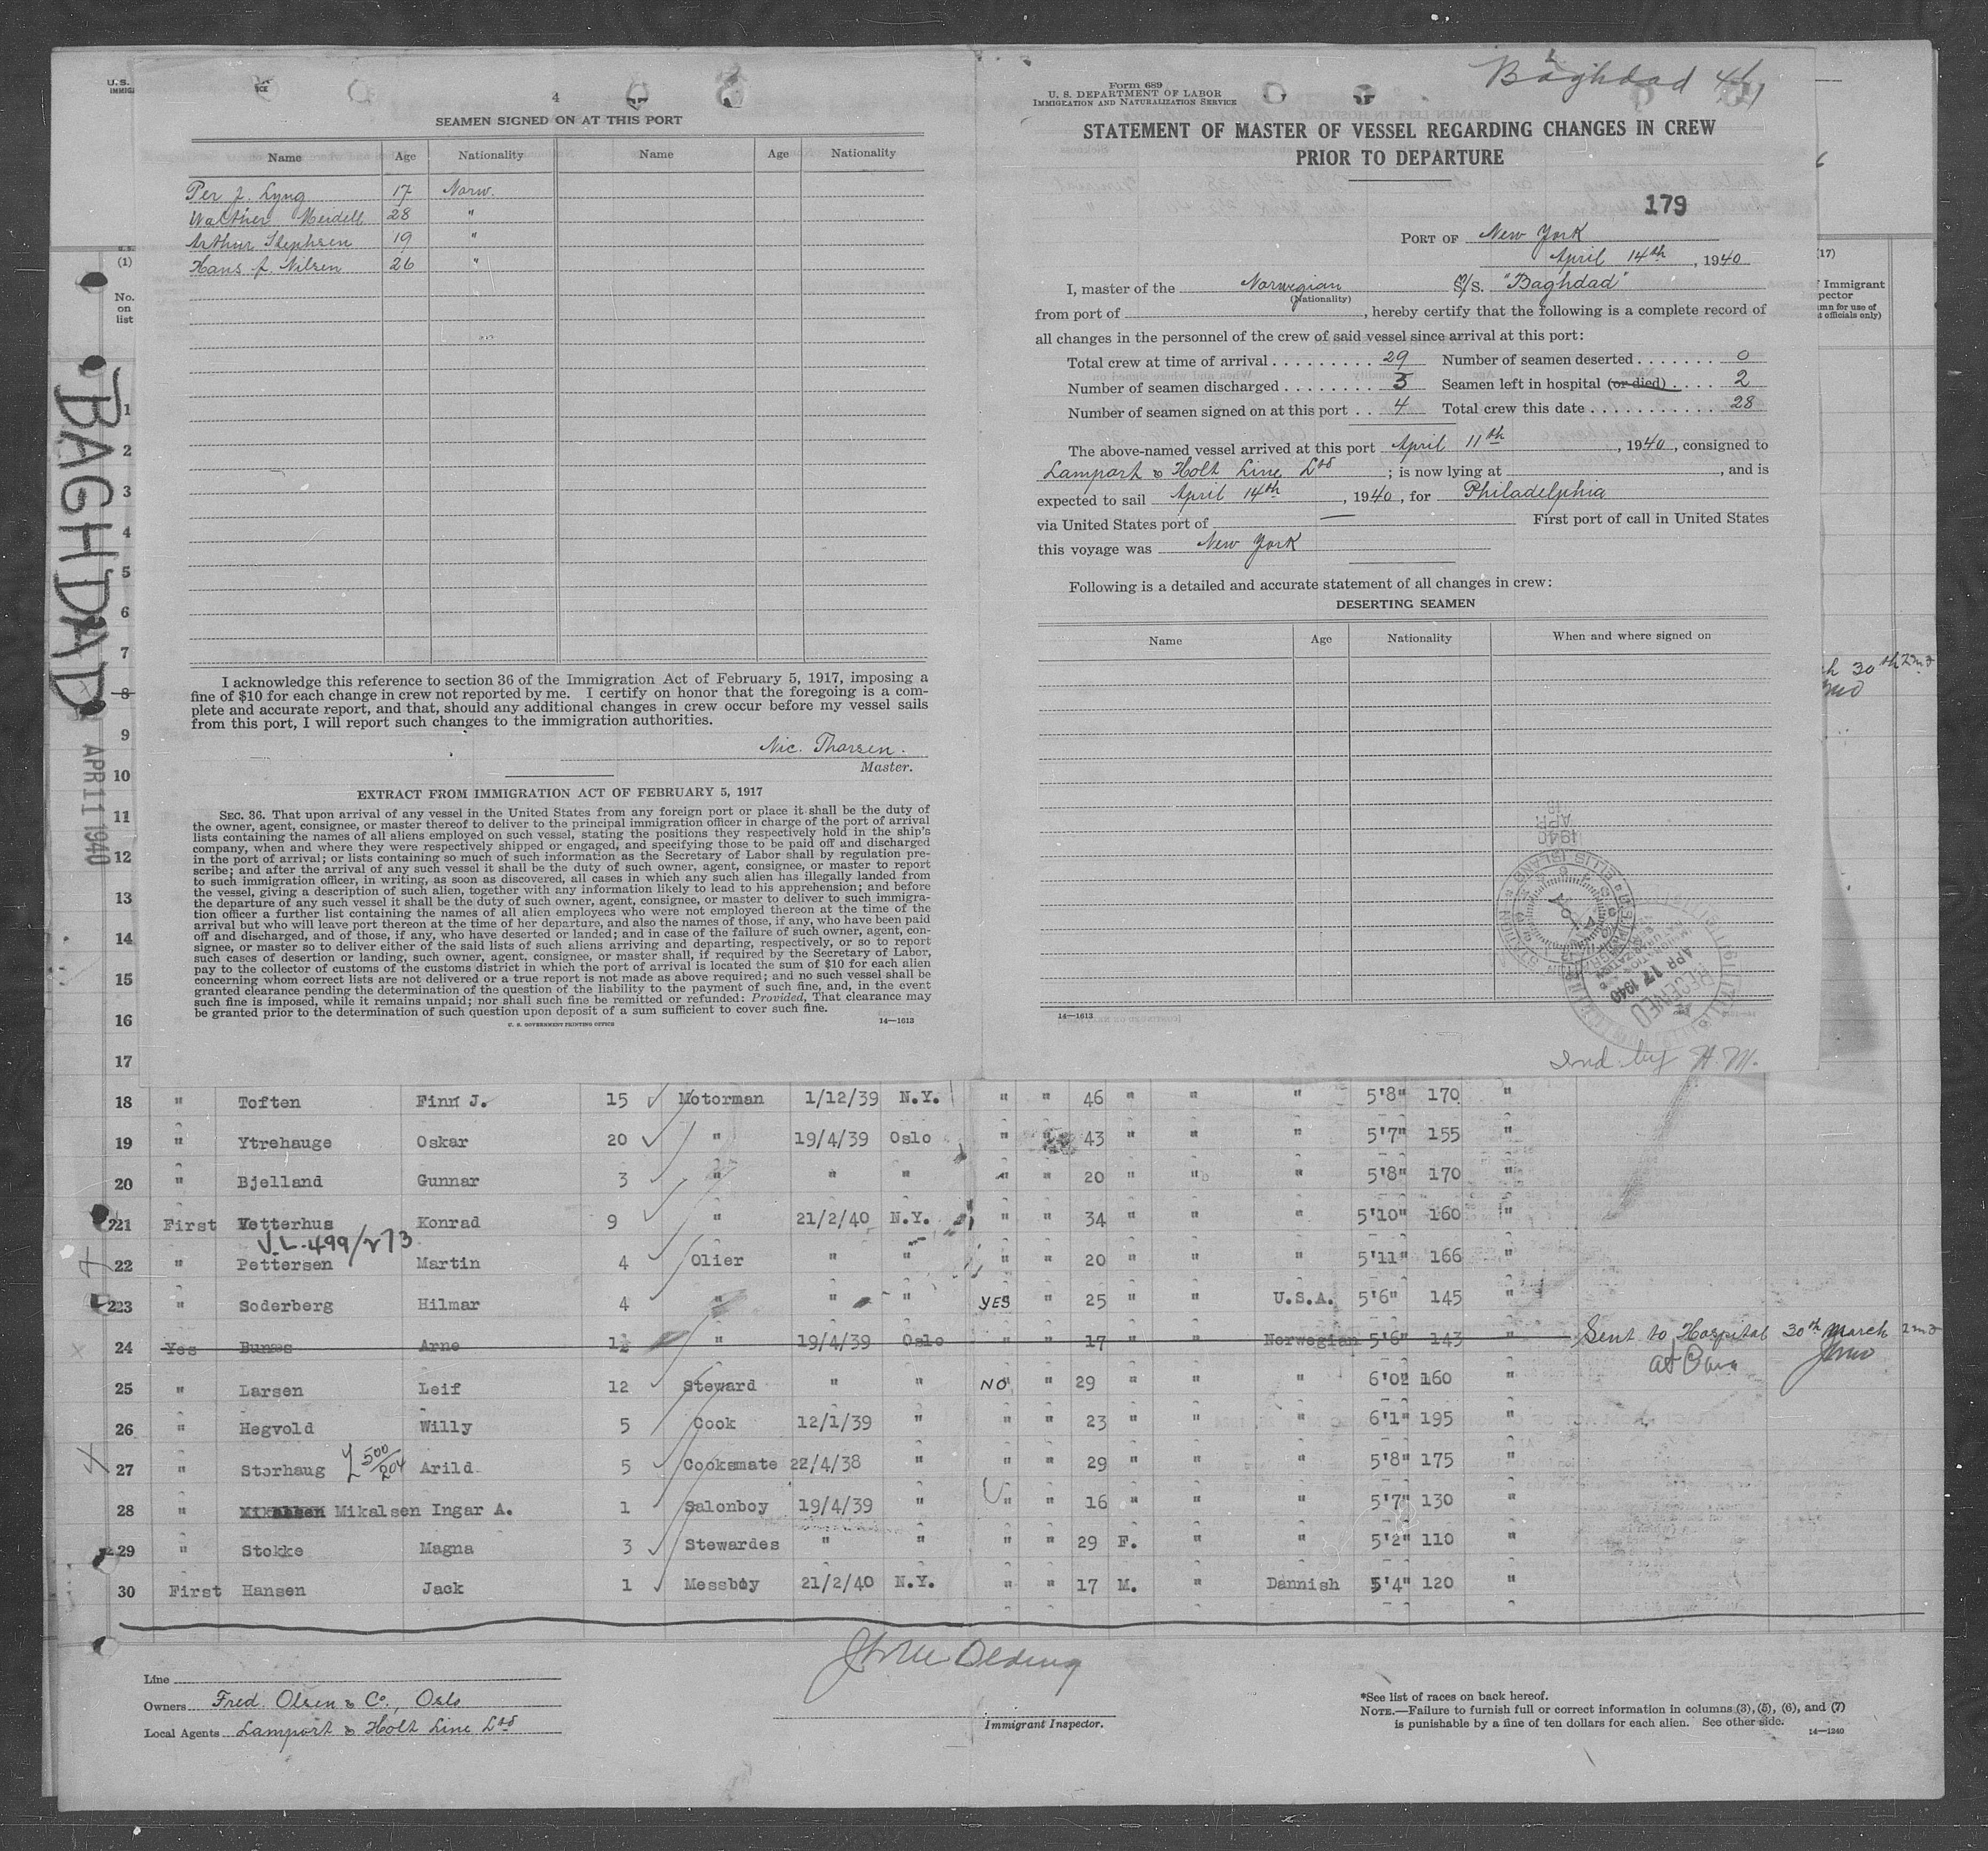 BAGHDAD
APR 11 1940
U.S.
(1)
No.
on
list
1
2
3
4
5
6
7
8
9
10
11
12
13
14
15
16
17
4
SEAMEN SIGNED ON AT THIS PORT
Name Age Nationality Name Age Nationality
Per J. Lyng 17 Norw.
Walther Meidell 28 "
Arthur Stephsen 19 "
Hans J. Nilsen 26 "
I acknowledge this reference to section 36 of the Immigration Act of February 5, 1917, imposing a
fine of $10 for each change in crew not reported by me. I certify on honor that the foregoing is a com-
plete and accurate report, and that, should any additional changes in crew occur before my vessel sails
from this port, I will report such changes to the immigration authorities.
Nic. Thorsen.
Master.
EXTRACT FROM IMMIGRATION ACT OF FEBRUARY 5, 1917
SEC. 36. That upon arrival of any vessel in the United States from any foreign port or place it shall be the duty of
the owner, agent, consignee, or master thereof to deliver to the principal immigration officer in charge of the port of arrival
lists containing the names of all aliens employed on such vessel, stating the positions they respectively hold in the ship's
company, when and where they were respectively shipped or engaged, and specifying those to be paid off and discharged
in the port of arrival; or lists containing so much of such information as the Secretary of Labor shall by regulation pre-
scribe; and after the arrival of any such vessel it shall be the duty of such owner, agent, consignee, or master to report
to such immigration officer, in writing, as soon as discovered, all cases in which any such alien has illegally landed from
the vessel, giving a description of such alien, together with any information likely to lead to his apprehension; and before
the departure of any such vessel it shall be the duty of such owner, agent, consignee, or master to deliver to such immigra-
tion officer a further list containing the names of all alien employees who were not employed thereon at the time of the
arrival but who will leave port thereon at the time of her departure, and also the names of those, if any, who have been paid
off and discharged, and of those, if any, who have deserted or landed; and in case of the failure of such owner, agent, con-
signee, or master so to deliver either of the said lists of such aliens arriving and departing, respectively, or so to report
such cases of desertion or landing, such owner, agent, consignee, or master shall, if required by the Secretary of Labor,
pay to the collector of customs of the customs district in which the port of arrival is located the sum of $10 for each alien
concerning whom correct lists are not delivered or a true report is not made as above required; and no such vessel shall be
granted clearance pending the determination of the question of the liability to the payment of such fine, and, in the event
such fine is imposed, while it remains unpaid; nor shall such fine be remitted or refunded: Provided, That clearance may
be granted prior to the determination of such question upon deposit of a sum sufficient to cover such fine.
U. S. GOVERNMENT PRINTING OFFICE 14—1613
Baghdad 4/11
Form 689
U. S. DEPARTMENT OF LABOR
IMMIGRATION AND NATURALIZATION SERVICE
STATEMENT OF MASTER OF VESSEL REGARDING CHANGES IN CREW
PRIOR TO DEPARTURE
179
PORT OF New York
April 14th, 1940
I, master of the Norwegian M/S. "Baghdad"
(Nationality)
from port of , hereby certify that the following is a complete record of
all changes in the personnel of the crew of said vessel since arrival at this port:
Total crew at time of arrival 29 Number of seamen deserted 0
Number of seamen discharged 3 Seamen left in hospital (or died) 2
Number of seamen signed on at this port 4 Total crew this date 28
The above-named vessel arrived at this port April 11th, 1940, consigned to
Lamport & Holt Line Ltd; is now lying at , and is
expected to sail April 14th, 1940, for Philadelphia
via United States port of — First port of call in United States
this voyage was New York
Following is a detailed and accurate statement of all changes in crew:
DESERTING SEAMEN
Name Age Nationality When and where signed on
14—1613
RECEIVED
APR 17 1940
Ind. by H.M.
(17)
Immigrant
18 " Toften Finn J. 15 Motorman 1/12/39 N.Y. " " 46 " " " 5'8" 170 "
19 " Ytrehauge Oskar 20 " 19/4/39 Oslo " " 43 " " " 5'7" 155 "
20 " Bjelland Gunnar 3 " " " " " 20 " " " 5'8" 170 "
21 First Vetterhus Konrad 9 " 21/2/40 N.Y. " " 34 " " " 5'10" 160 "
V.L. 499/273
22 " Pettersen Martin 4 Olier " " " " 20 " " " 5'11" 166 "
23 " Soderberg Hilmar 4 " " " YES " 25 " " U.S.A. 5'6" 145 "
24 Yes Bunæs Arne 1½ " 19/4/39 Oslo " " 17 " " Norwegian 5'6" 143 " Sent to Hospital 30th March
25 " Larsen Leif 12 Steward " " NO " 29 " " " 6'0" 160 "
26 " Hegvold Willy 5 Cook 12/1/39 " " " 23 " " " 6'1" 195 "
27 " Storhaug 500/204 Arild 5 Cooksmate 22/4/38 " " " 29 " " " 5'8" 175 "
28 " Mikalsen Ingar A. 1 Salonboy 19/4/39 " " " 16 " " " 5'7" 130 "
29 " Stokke Magna 3 Stewardes " " " " 29 F. " " 5'2" 110 "
30 First Hansen Jack 1 Messboy 21/2/40 N.Y. " " 17 M. " Dannish 5'4" 120 "
Line
Owners Fred. Olsen & Co., Oslo
Local Agents Lamport & Holt Line Ltd
Immigrant Inspector.
*See list of races on back hereof.
NOTE.—Failure to furnish full or correct information in columns (3), (5), (6), and (7)
is punishable by a fine of ten dollars for each alien. See other side.
14—1240